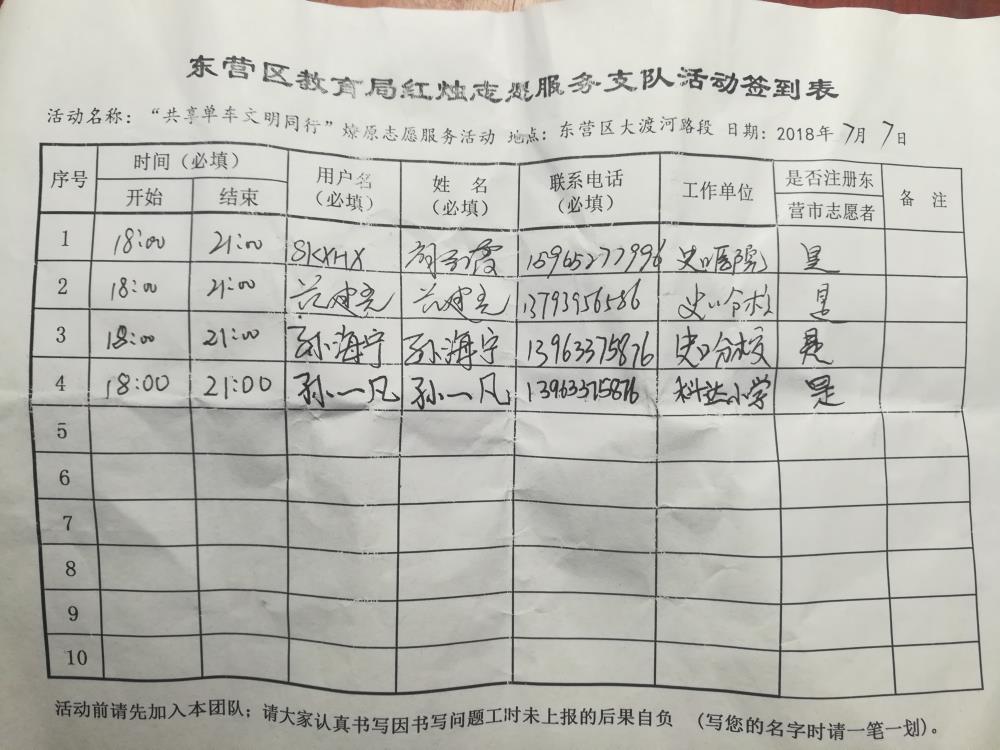 东营区教育局红烛志愿服务支队活动签到表
活动名称：“共享单车文明同行”燎原志愿服务活动 地点：东营区大渡河路段 日期：2018年 7月 7日
序号 时间（必填） 用户名（必填） 姓 名（必填） 联系电话（必填） 工作单位 是否注册东营市志愿者 备 注
开始 结束
1 18:00 21:00 SKXHX 霞 15965277996 史口医院 是
2 18:00 21:00 13793956586 史口分校 是
3 18:00 21:00 孙海宁 孙海宁 13963375876 史口分校 是
4 18:00 21:00 孙一凡 孙一凡 13963375876 科达小学 是
5
6
7
8
9
10
活动前请先加入本团队；请大家认真书写因书写问题工时未上报的后果自负 （写您的名字时请一笔一划）。